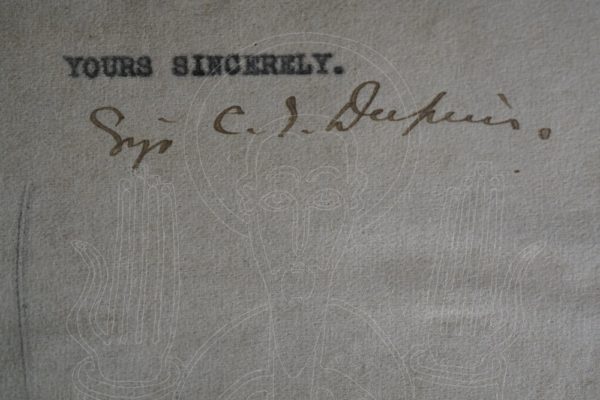 YOURS SINCERELY.
C. J. Dupuis.